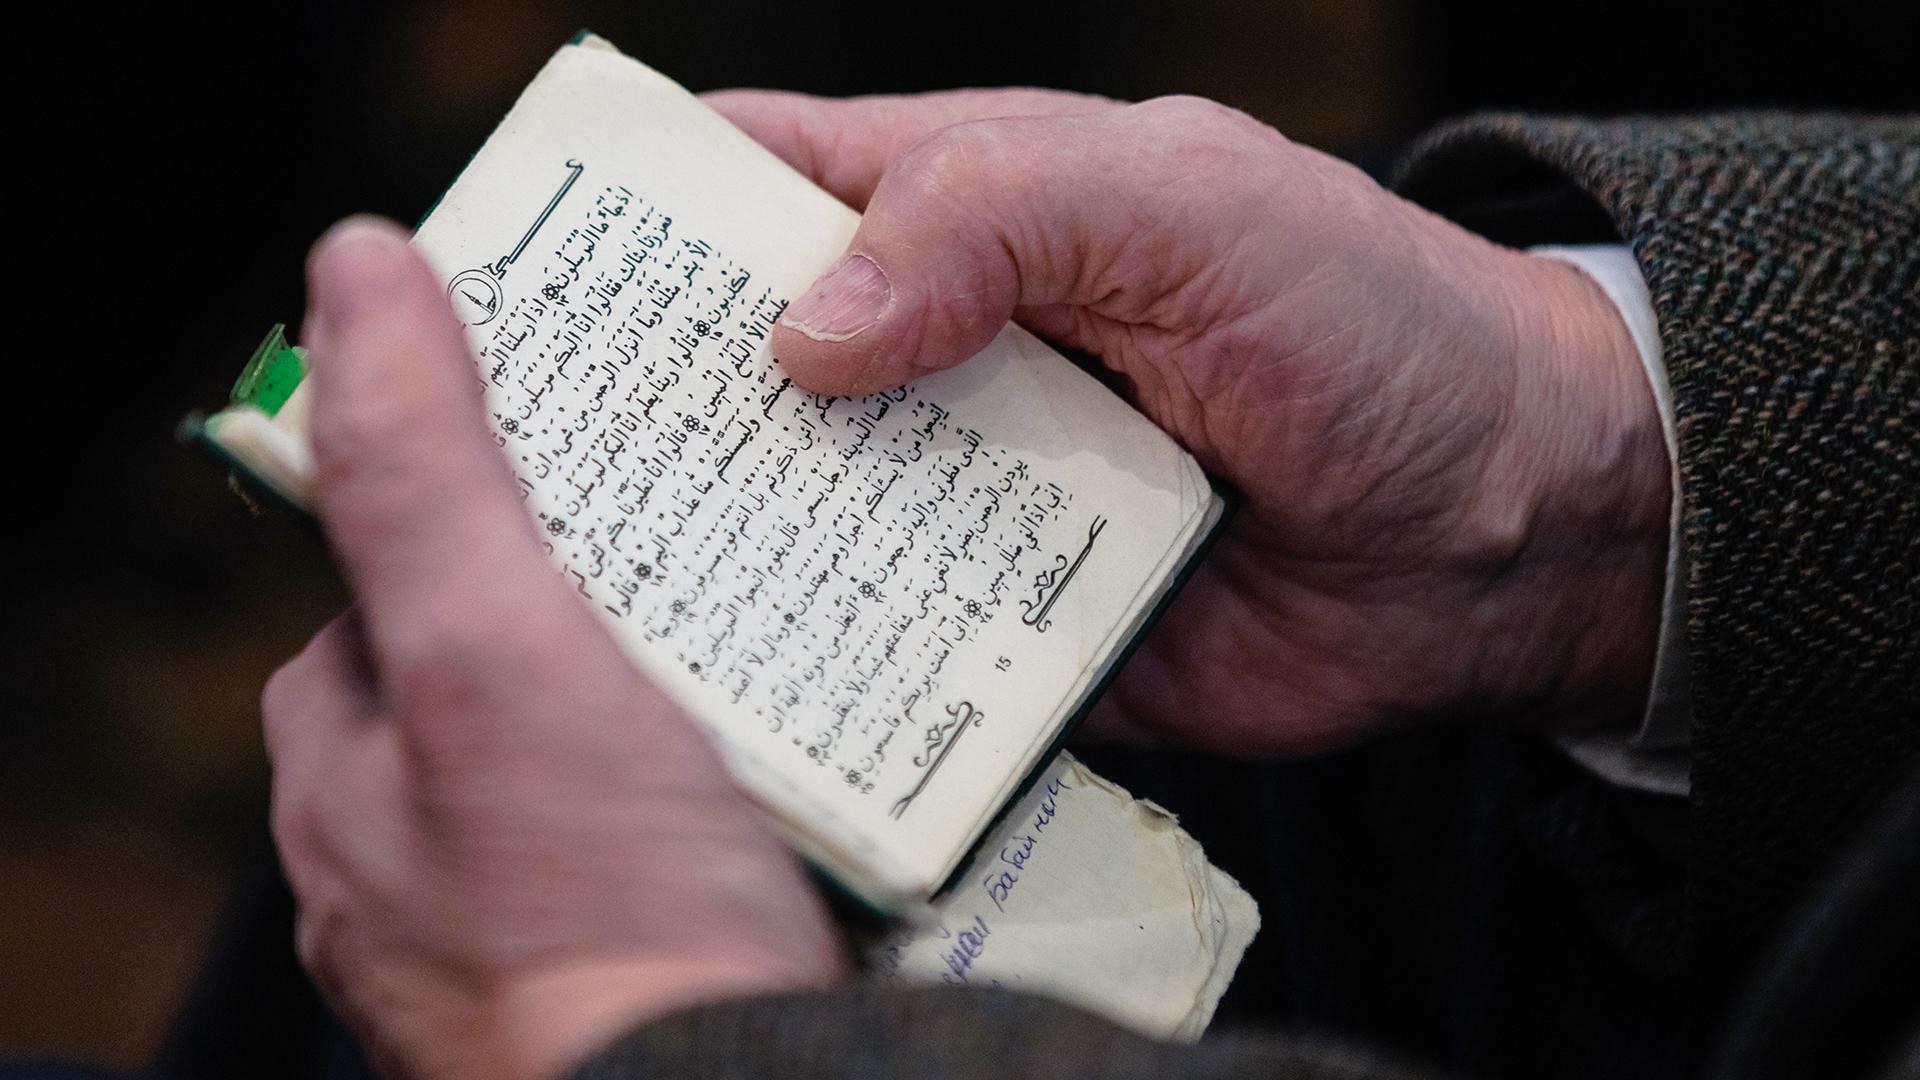 اِذْ جَاءَهَا الْمُرْسَلُونَ ١٣ اِذْ اَرْسَلْنَا اِلَيْهِمُ
فَعَزَّزْنَا بِثَالِثٍ فَقَالُوا اِنَّا اِلَيْكُمْ مُرْسَلُونَ ١٤
اِلَّا بَشَرٌ مِثْلُنَا وَمَا اَنْزَلَ الرَّحْمٰنُ مِنْ شَيْءٍ اِنْ
تَكْذِبُونَ ١٥ قَالُوا رَبُّنَا يَعْلَمُ اِنَّا اِلَيْكُمْ لَمُرْسَلُونَ ١٦ وَ
عَلَيْنَا اِلَّا الْبَلٰغُ الْمُبِينُ ١٧ قَالُوا اِنَّا تَطَيَّرْنَا بِكُمْ لَئِنْ لَمْ
وَلَيَمَسَّنَّكُمْ مِنَّا عَذَابٌ اَلِيمٌ ١٨ قَالُوا
اَئِنْ ذُكِّرْتُمْ بَلْ اَنْتُمْ قَوْمٌ مُسْرِفُونَ ١٩ وَجَاءَ
مِنْ اَقْصَا الْمَدِينَةِ رَجُلٌ يَسْعٰى قَالَ يٰقَوْمِ اتَّبِعُوا الْمُرْسَلِينَ ٢٠
اِتَّبِعُوا مَنْ لَا يَسْئَلُكُمْ اَجْرًا وَهُمْ مُهْتَدُونَ ٢١ وَمَا لِىَ لَا اَعْبُدُ
الَّذِى فَطَرَنِى وَاِلَيْهِ تُرْجَعُونَ ٢٢ ءَاَتَّخِذُ مِنْ دُونِهِ اٰلِهَةً اِنْ
يُرِدْنِ الرَّحْمٰنُ بِضُرٍّ لَا تُغْنِ عَنِّى شَفَاعَتُهُمْ شَيْئًا وَلَا يُنْقِذُونِ ٢٣
اِنِّى اِذًا لَفِى ضَلٰلٍ مُبِينٍ ٢٤ اِنِّى اٰمَنْتُ بِرَبِّكُمْ فَاسْمَعُونِ ٢٥
15